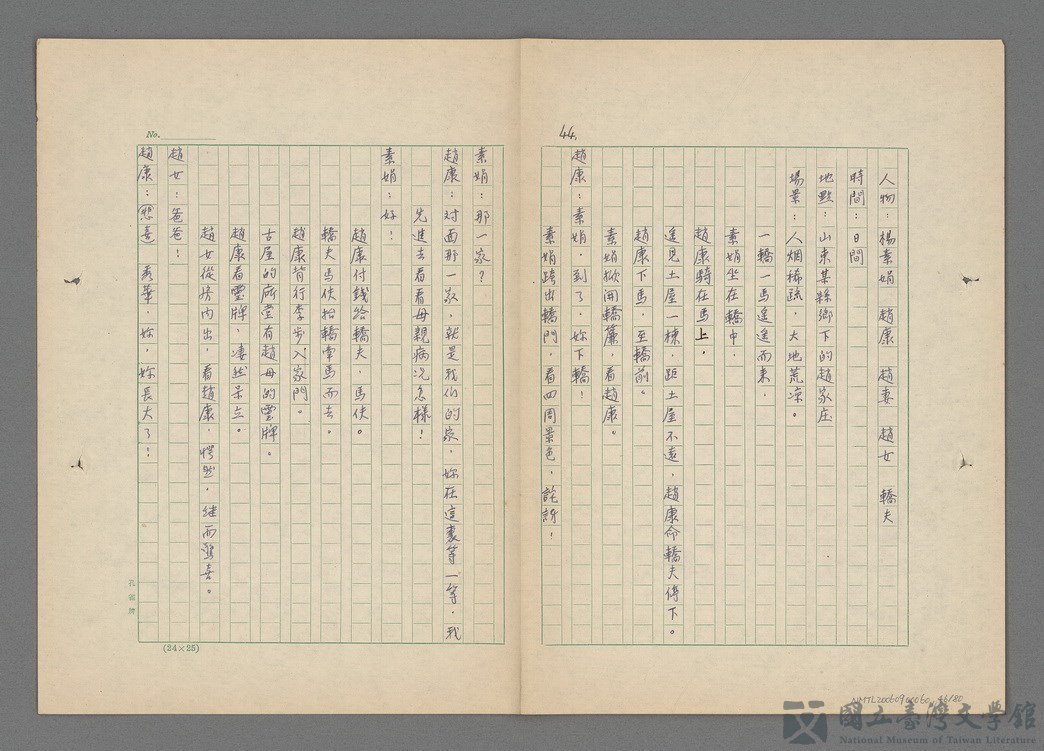 44.
人物：楊素娟 趙康 趙妻 趙女 轎夫
時間：日間
地點：山東某縣鄉下的趙家庄
場景：人烟稀疏，大地荒凉。
一轎一馬遥遥而来，
素娟坐在轎中，
趙康騎在馬上，
遥見土屋一棟，距土屋不遠，趙康命轎夫停下。
趙康下馬，至轎前。
素娟掀開轎簾，看趙康。
趙康：素娟，到了，妳下轎！
素娟跨出轎門，看四周景色，詫訝！
No.
素娟：那一家？
趙康：对面那一家，就是我们的家，妳在這裏等一等，我
先進去看看母親病况怎樣！
素娟：好！
趙康付錢給轎夫，馬伕。
轎夫馬伕抬轎牽馬而去。
趙康背行李步入家門。
古屋的廳堂有趙母的靈牌。
趙康看靈牌，凄然呆立。
趙女從房内出，看趙康，愕然，继而驚喜。
趙女：爸爸！
趙康：悲喜 秀華，妳，妳長大了！
孔雀牌
(24×25)
NMTL20060900060 46/80
國立臺灣文學館
National Museum of Taiwan Literature